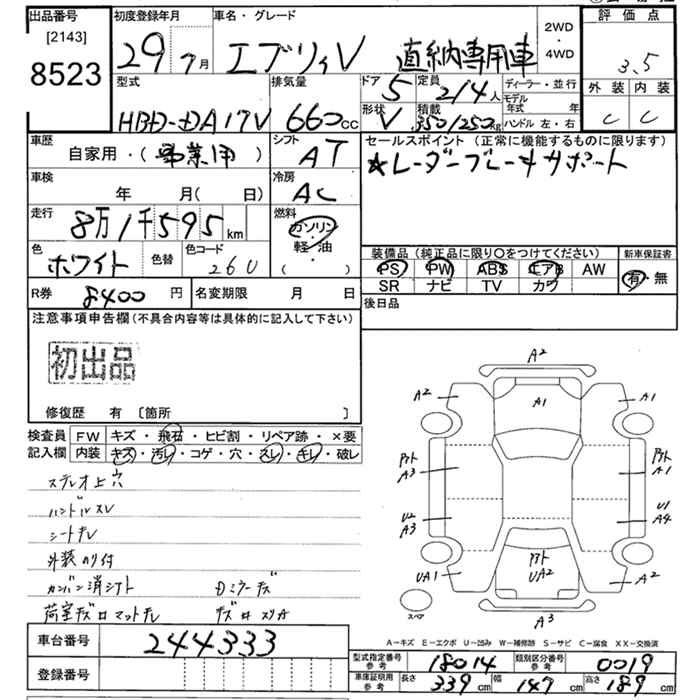 出品番号 初度登録年月 車名・グレード 2WD・4WD 評価点
[2143]
8523
29年7月 エブリィV 直納専用車 3.5
外装 内装
C C
型式 排気量 ドア 定員 ディーラー・並行
HBD-DA17V 660cc 5 2/4人 モデル年式 年
形状 積載
V 350/250kg ハンドル 左・右
車歴 シフト セールスポイント(正常に機能するものに限ります)
自家用・(事業用) AT ☆レーダーブレーキサポート
車検 冷房
年 月(日) AC
走行 燃料
8万1千595km ガソリン・軽油
( )
色 色替 色コード
ホワイト 26U
装備品(純正品に限り○をつけてください) 新車保証書
PS PW ABS エアB AW 有・無
SR ナビ TV カワ
R券 8400円 名変期限 月 日 後日品
注意事項申告欄(不具合内容等は具体的に記入して下さい)
初出品
修復歴 有〔箇所 〕
検査員記入欄
FW キズ・飛石・ヒビ割・リペア跡・×要
内装 キズ・汚レ・コゲ・穴・スレ・キレ・破レ
ステレオ上穴
ハンドルスレ
シートキレ
外装のり付
カンバン消シアト Dミラーキズ
荷室キズ ロマットキレ
A2
A2 A1 A1
A3 A1
U2 U1
A3 A4
UA1 UA2 A2
スペア A3
A-キズ E-エクボ U-凹み W-補修跡 S-サビ C-腐食 XX-交換済
車台番号 244333
登録番号
型式指定番号参考 18014 類別区分番号参考 0019
車庫証明用参考 長さ 339cm 幅 147cm 高さ 189cm